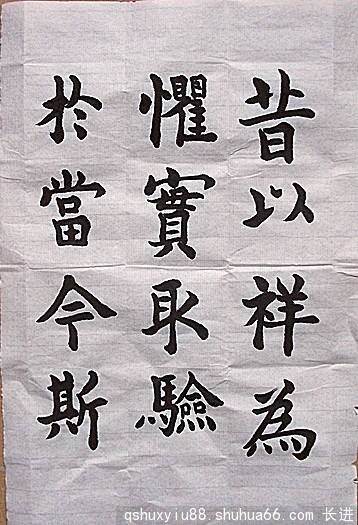 昔以祥為
懼實取驗
於當今斯
qshuxyiu88.shuhua66.com 长进